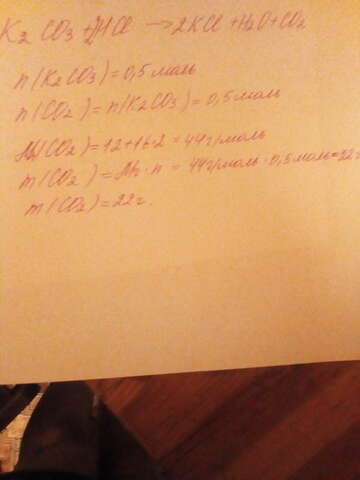 K2 CO3 + 2HCl → 2KCl + H2O + CO2
n(K2CO3) = 0,5 моль
n(CO2) = n(K2CO3) = 0,5 моль
M(CO2) = 12 + 16·2 = 44 г/моль
m(CO2) = M · n = 44 г/моль · 0,5 моль = 22 г
m(CO2) = 22 г.